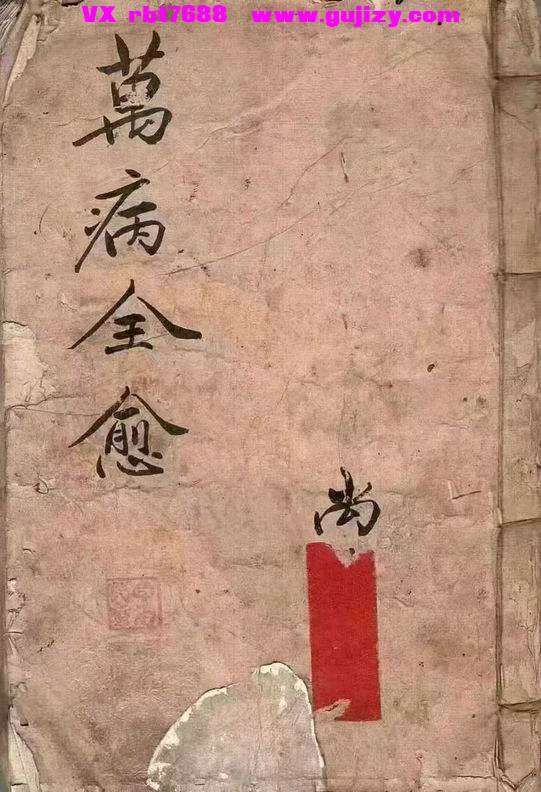 VX rbt7688 www.gujizy.com
萬病全愈
尚